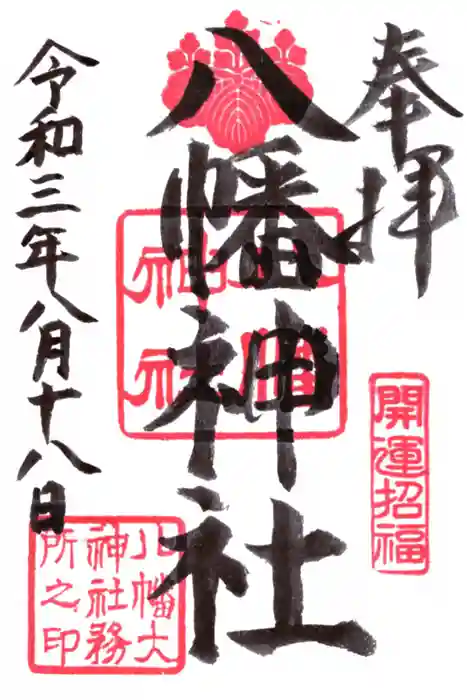 奉拝
開運招福
八幡神社
八幡神社
令和三年八月十八日
八幡大
神社務
所之印